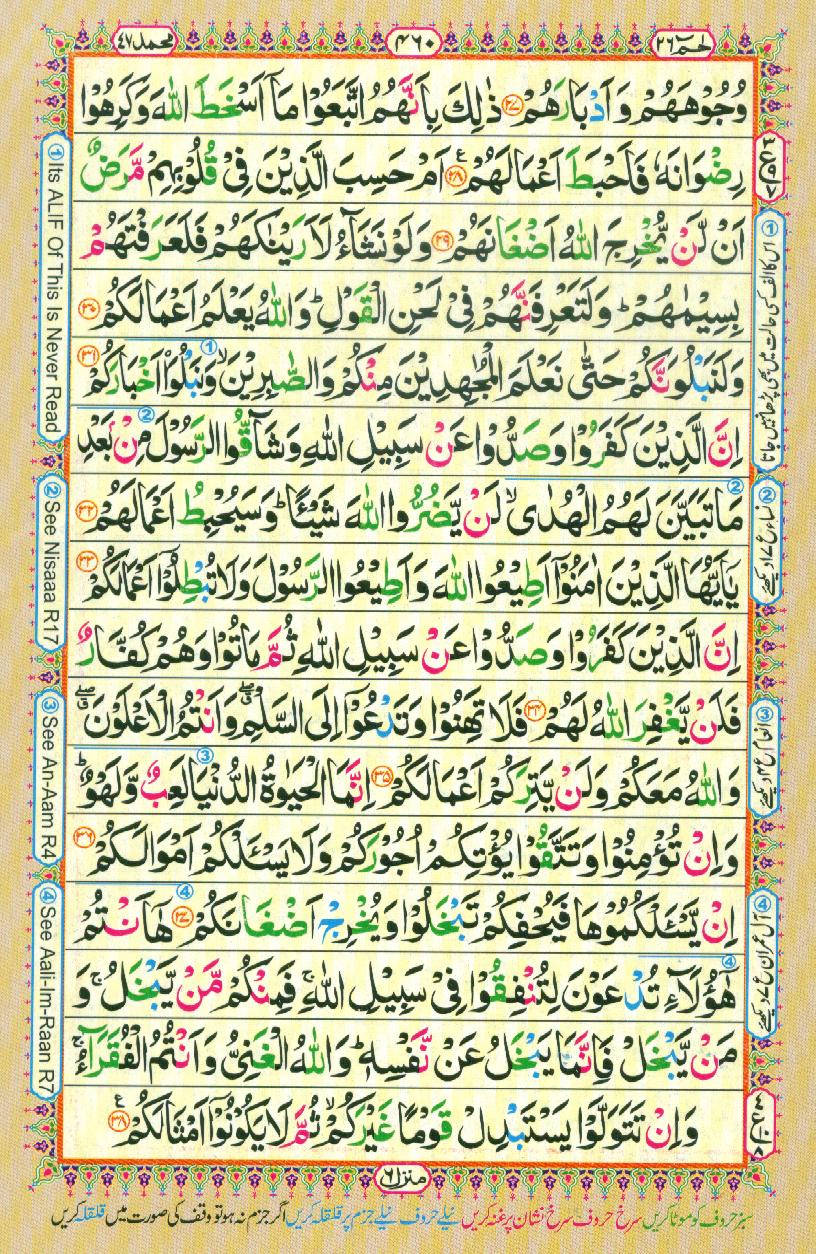 حٰمٓ ٢٦
٤٦٠
محمد ٤٧
وُجُوْهَهُمْ وَاَدْبَارَهُمْ ﴿٢٧﴾ ذٰلِكَ بِاَنَّهُمُ اتَّبَعُوْا مَاۤ اَسْخَطَ اللّٰهَ وَكَرِهُوْا
رِضْوَانَهٗ فَاَحْبَطَ اَعْمَالَهُمْ ﴿٢٨﴾ اَمْ حَسِبَ الَّذِيْنَ فِيْ قُلُوْبِهِمْ مَّرَضٌ
اَنْ لَّنْ يُّخْرِجَ اللّٰهُ اَضْغَانَهُمْ ﴿٢٩﴾ وَلَوْ نَشَآءُ لَاَرَيْنٰكَهُمْ فَلَعَرَفْتَهُمْ
بِسِيْمٰهُمْ ؕ وَلَتَعْرِفَنَّهُمْ فِيْ لَحْنِ الْقَوْلِ ؕ وَاللّٰهُ يَعْلَمُ اَعْمَالَكُمْ ﴿٣٠﴾
وَلَنَبْلُوَنَّكُمْ حَتّٰى نَعْلَمَ الْمُجٰهِدِيْنَ مِنْكُمْ وَالصّٰبِرِيْنَ ۙ وَنَبْلُوَا۟ اَخْبَارَكُمْ ﴿٣١﴾
اِنَّ الَّذِيْنَ كَفَرُوْا وَصَدُّوْا عَنْ سَبِيْلِ اللّٰهِ وَشَآقُّوا الرَّسُوْلَ مِنْۢ بَعْدِ
مَا تَبَيَّنَ لَهُمُ الْهُدٰى ۙ لَنْ يَّضُرُّوا اللّٰهَ شَيْـًٔا ؕ وَسَيُحْبِطُ اَعْمَالَهُمْ ﴿٣٢﴾
يٰۤاَيُّهَا الَّذِيْنَ اٰمَنُوْۤا اَطِيْعُوا اللّٰهَ وَاَطِيْعُوا الرَّسُوْلَ وَلَا تُبْطِلُوْۤا اَعْمَالَكُمْ ﴿٣٣﴾
اِنَّ الَّذِيْنَ كَفَرُوْا وَصَدُّوْا عَنْ سَبِيْلِ اللّٰهِ ثُمَّ مَاتُوْا وَهُمْ كُفَّارٌ
فَلَنْ يَّغْفِرَ اللّٰهُ لَهُمْ ﴿٣٤﴾ فَلَا تَهِنُوْا وَتَدْعُوْۤا اِلَى السَّلْمِ ۖ وَاَنْتُمُ الْاَعْلَوْنَ ۖ
وَاللّٰهُ مَعَكُمْ وَلَنْ يَّتِرَكُمْ اَعْمَالَكُمْ ﴿٣٥﴾ اِنَّمَا الْحَيٰوةُ الدُّنْيَا لَعِبٌ وَّلَهْوٌ ؕ
وَاِنْ تُؤْمِنُوْا وَتَتَّقُوْا يُؤْتِكُمْ اُجُوْرَكُمْ وَلَا يَسْـَٔلْكُمْ اَمْوَالَكُمْ ﴿٣٦﴾
اِنْ يَّسْـَٔلْكُمُوْهَا فَيُحْفِكُمْ تَبْخَلُوْا وَيُخْرِجْ اَضْغَانَكُمْ ﴿٣٧﴾ هٰۤاَنْتُمْ
هٰۤؤُلَآءِ تُدْعَوْنَ لِتُنْفِقُوْا فِيْ سَبِيْلِ اللّٰهِ ۚ فَمِنْكُمْ مَّنْ يَّبْخَلُ ۚ وَ
مَنْ يَّبْخَلْ فَاِنَّمَا يَبْخَلُ عَنْ نَّفْسِهٖ ؕ وَاللّٰهُ الْغَنِيُّ وَاَنْتُمُ الْفُقَرَآءُ ۚ
وَاِنْ تَتَوَلَّوْا يَسْتَبْدِلْ قَوْمًا غَيْرَكُمْ ۙ ثُمَّ لَا يَكُوْنُوْۤا اَمْثَالَكُمْ ﴿٣٨﴾
منزل ٦
سبز حروف کو موٹا کریں سرخ حروف سرخ نشان پر غنہ کریں نیلے حروف نیلے جزم پر قلقلہ کریں اگر جزم نہ ہو تو وقف کی صورت میں قلقلہ کریں
① اس کا الف کسی حالت میں بھی پڑھا نہیں جاتا
② نساء ع ١٧ دیکھئے
③ انعام ع ٤ دیکھئے
④ آل عمران ع ٧ دیکھئے
① Its ALIF Of This Is Never Read
② See Nisaaa R17
③ See An-Aam R4
④ See Aali-Im-Raan R7